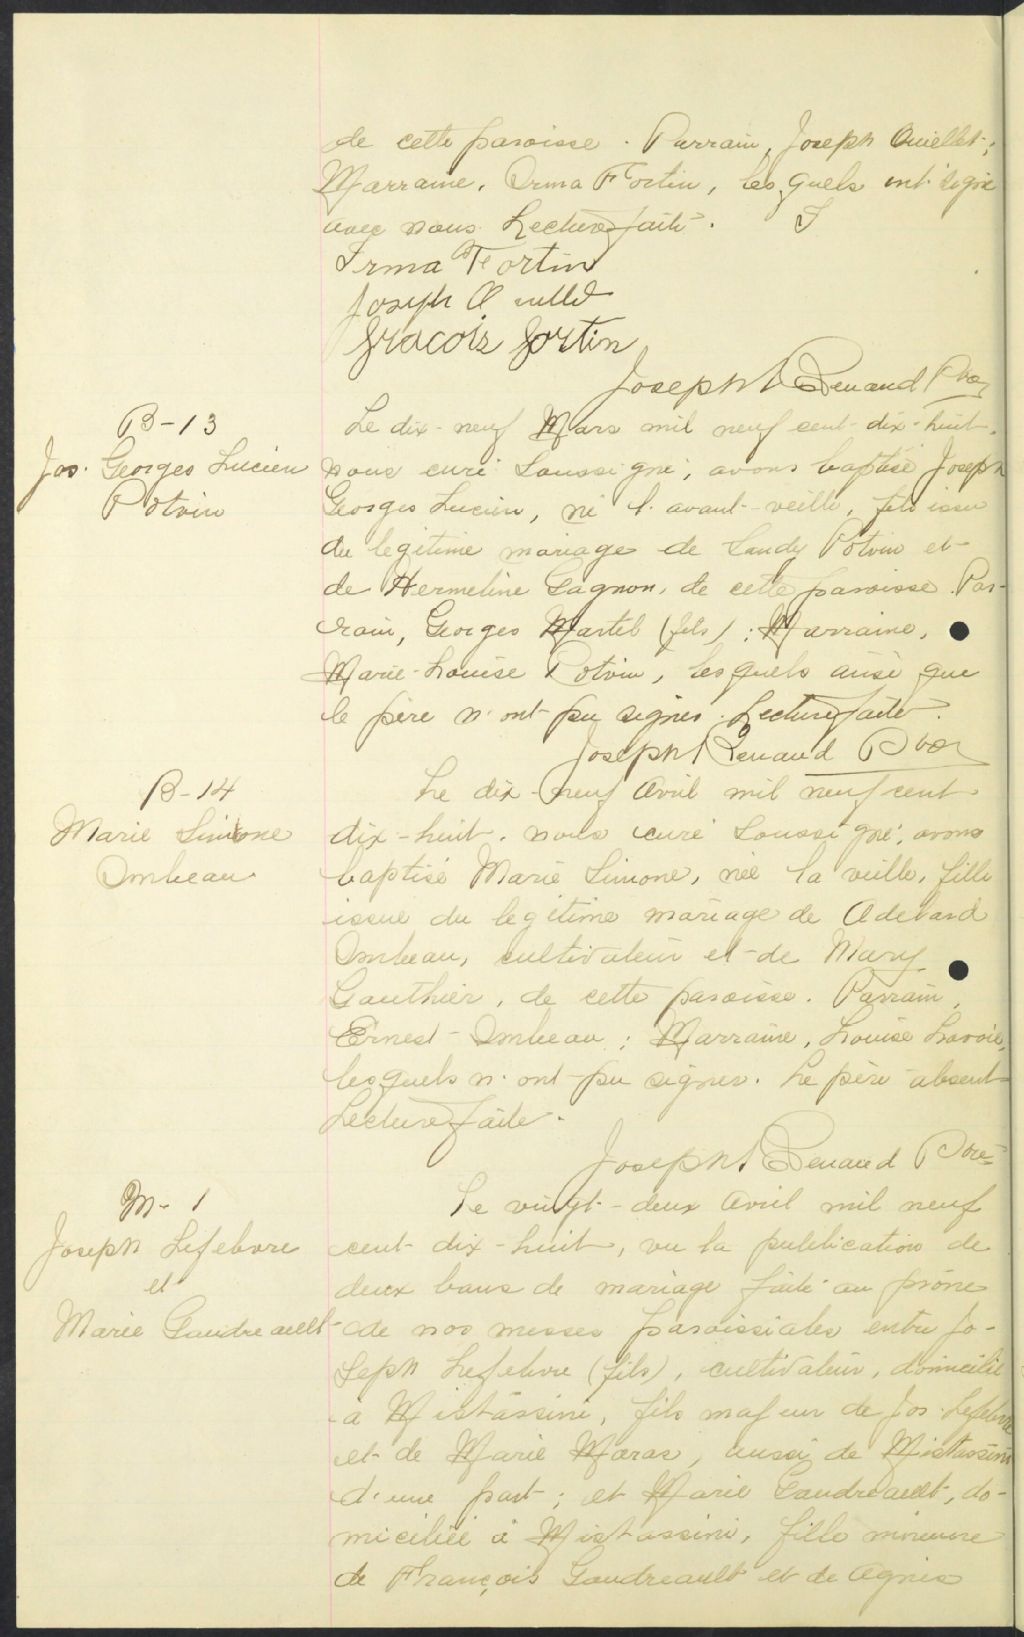 de cette paroisse. Parrain, Joseph Ouellet;
Marraine, Irma Fortin, lesquels ont signé
avec nous. Lecture faite.
Irma Fortin
Joseph Ouellet
Fracois Fortin
Joseph Renaud Ptre
B-13
Jos. Georges Lucien
Potvin
Le dix-neuf Mars mil neuf cent dix-huit,
nous curé soussigné, avons baptisé Joseph
Georges Lucien, né l'avant-veille, fils issu
du légitime mariage de Saudy Potvin et
de Hermeline Gagnon, de cette paroisse. Par-
rain, Georges Martel (fils); Marraine,
Marie-Louise Potvin, lesquels ainsi que
le père n'ont pu signer. Lecture faite.
Joseph Renaud Ptre
B-14
Marie Simone
Imbeau
Le dix-neuf Avril mil neuf cent
dix-huit, nous curé soussigné, avons
baptisé Marie Simone, née la veille, fille
issue du légitime mariage de Adelard
Imbeau, cultivateur et de Mary
Gauthier, de cette paroisse. Parrain,
Ernest Imbeau; Marraine, Louise Lavoie,
lesquels n'ont pu signer. Le père absent
Lecture faite.
Joseph Renaud Ptre
M-1
Joseph Lefebvre
et
Marie Gaudreault
Le vingt-deux Avril mil neuf
cent dix-huit, vu la publication de
deux bans de mariage faite au prône
de nos messes paroissiales entre Jo-
seph Lefebvre (fils), cultivateur, domicilié
à Mistassini, fils majeur de Jos. Lefebvre
et de Marie Maras, aussi de Mistassini
d'une part; et Marie Gaudreault, do-
miciliée à Mistassini, fille mineure
de François Gaudreault et de Agnès